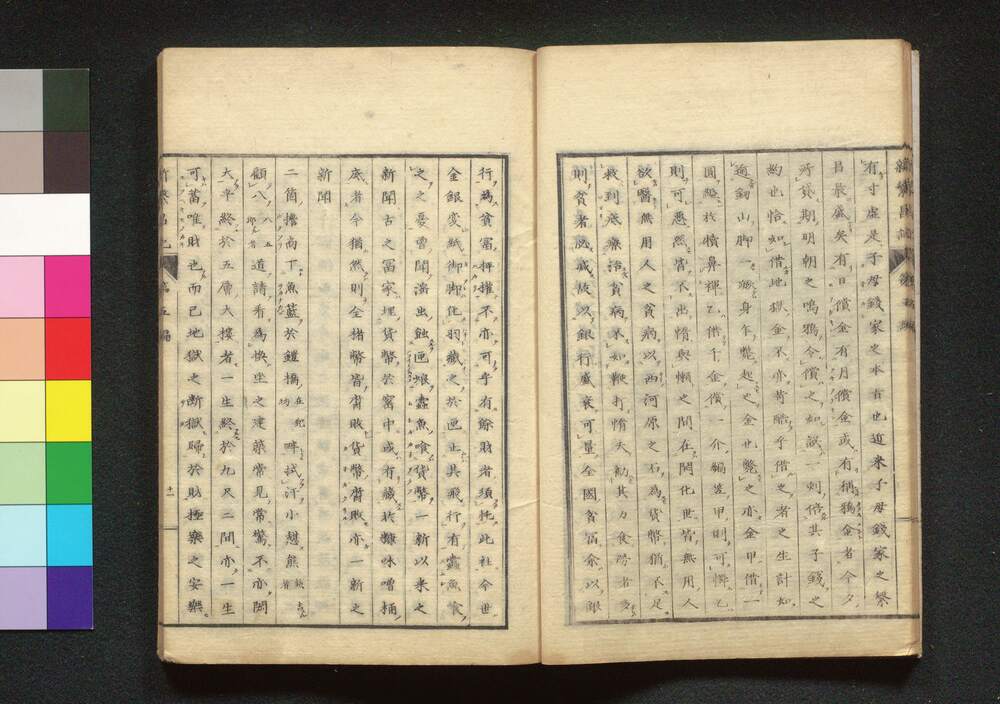 有寸虚是子母錢家之本吉也近来子母錢家之繁
昌最盛矣有日償金有月償金或有稱鴉金者今夕
所貸期明朝之鳴鴉今償之如試一刻倍其子錢之
約也恰如借地獄金不亦苦酷乎借之者之生計如
適劔山脚一獨身乍斃起之金也斃之亦金甲借一
圓縊於犢鼻褌乙借千金償一介編笠甲則可憐乙
則可惡然皆不出惰與懶之間在開化世皆無用人
欲醫無用人之貧病以西河原之石為貨幣猶不足
救到底療治貧病策如鞭打惰夫勧其力食勝者多
則貧者必減故以銀行盛衰可量全國貧富余以銀
行為貧富秤權不亦可乎有餘財者須托此社今世
金銀変紙御脚化羽藏之於匣止其飛行有蠹魚食
之之憂曽聞濡虫蝕匣娘蠹魚喰貨幣一新以来之
新聞古之冨家埋貨幣於窖中或有藏於糠味噌桶
底者今猶然則全楮幣皆腐敗貨幣腐敗亦一新之
新聞
二箇擔商下魚籃於鎧橋畔拭汗小憩熊
顧八道請看為換坐之建築常見常驚不亦閎
大乎終於五層大樓者一生終於九尺二間亦一生
可蓄唯財也而已地獄之断獄歸於財極樂之安樂